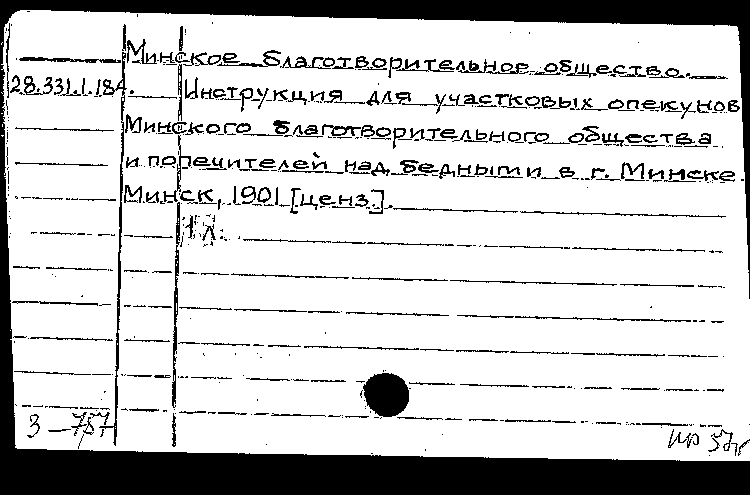 Минское благотворительное общество.
28.331.1.184. Инструкция для участковых опекунов
Минского благотворительного общества
и попечителей над бедными в г. Минске.
Минск, 1901 [ценз.].
1 л.
3 – 787